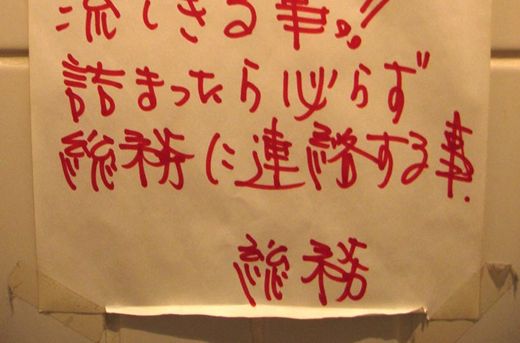 流しきる事!!
詰まったら必らず
総務に連絡する事.
総務